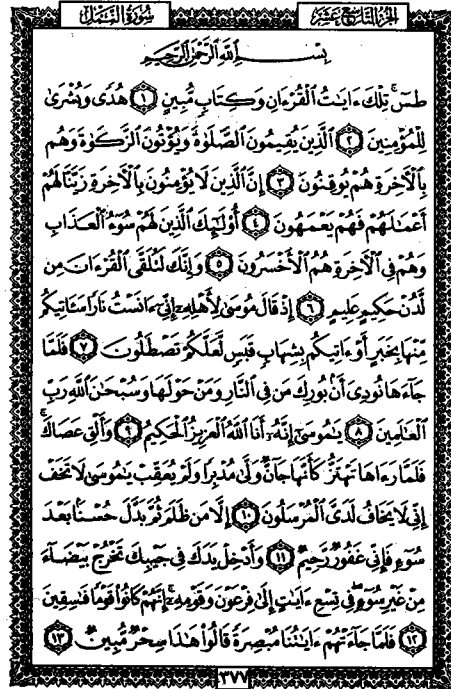 سُورَةُ النَّمْلِ
الجُزْءُ التَّاسِعَ عَشَرَ
بِسْمِ اللَّهِ الرَّحْمَٰنِ الرَّحِيمِ
طسٓ ۚ تِلْكَ ءَايَٰتُ الْقُرْءَانِ وَكِتَابٍ مُّبِينٍ ١ هُدًى وَبُشْرَىٰ
لِلْمُؤْمِنِينَ ٢ الَّذِينَ يُقِيمُونَ الصَّلَوٰةَ وَيُؤْتُونَ الزَّكَوٰةَ وَهُم
بِالْأَخِرَةِ هُمْ يُوقِنُونَ ٣ إِنَّ الَّذِينَ لَا يُؤْمِنُونَ بِالْأَخِرَةِ زَيَّنَّا لَهُمْ
أَعْمَٰلَهُمْ فَهُمْ يَعْمَهُونَ ٤ أُوْلَٰٓئِكَ الَّذِينَ لَهُمْ سُوٓءُ الْعَذَابِ
وَهُمْ فِي الْأَخِرَةِ هُمُ الْأَخْسَرُونَ ٥ وَإِنَّكَ لَتُلَقَّى الْقُرْءَانَ مِن
لَّدُنْ حَكِيمٍ عَلِيمٍ ٦ إِذْ قَالَ مُوسَىٰ لِأَهْلِهِۦٓ إِنِّيٓ ءَانَسْتُ نَارًا سَـَٔاتِيكُم
مِّنْهَا بِخَبَرٍ أَوْ ءَاتِيكُم بِشِهَابٍ قَبَسٍ لَّعَلَّكُمْ تَصْطَلُونَ ٧ فَلَمَّا
جَآءَهَا نُودِيَ أَنۢ بُورِكَ مَن فِي النَّارِ وَمَنْ حَوْلَهَا وَسُبْحَٰنَ اللَّهِ رَبِّ
الْعَٰلَمِينَ ٨ يَٰمُوسَىٰٓ إِنَّهُۥٓ أَنَا اللَّهُ الْعَزِيزُ الْحَكِيمُ ٩ وَأَلْقِ عَصَاكَ ۚ
فَلَمَّا رَءَاهَا تَهْتَزُّ كَأَنَّهَا جَآنٌّ وَلَّىٰ مُدْبِرًا وَلَمْ يُعَقِّبْ ۚ يَٰمُوسَىٰ لَا تَخَفْ
إِنِّي لَا يَخَافُ لَدَيَّ الْمُرْسَلُونَ ١٠ إِلَّا مَن ظَلَمَ ثُمَّ بَدَّلَ حُسْنًۢا بَعْدَ
سُوٓءٍ فَإِنِّي غَفُورٌ رَّحِيمٌ ١١ وَأَدْخِلْ يَدَكَ فِي جَيْبِكَ تَخْرُجْ بَيْضَآءَ
مِنْ غَيْرِ سُوٓءٍ ۖ فِي تِسْعِ ءَايَٰتٍ إِلَىٰ فِرْعَوْنَ وَقَوْمِهِۦٓ ۚ إِنَّهُمْ كَانُوا۟ قَوْمًا فَٰسِقِينَ
١٢ فَلَمَّا جَآءَتْهُمْ ءَايَٰتُنَا مُبْصِرَةً قَالُوا۟ هَٰذَا سِحْرٌ مُّبِينٌ ١٣
٣٧٧